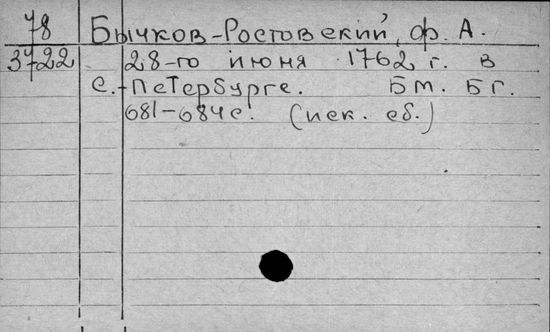 78 Бычков-Ростовский, ф. А.
3722 28-го июня 1762 г. в
С.-Петербурге. Б м. Б г.
681-684 с. (иск. сб.)